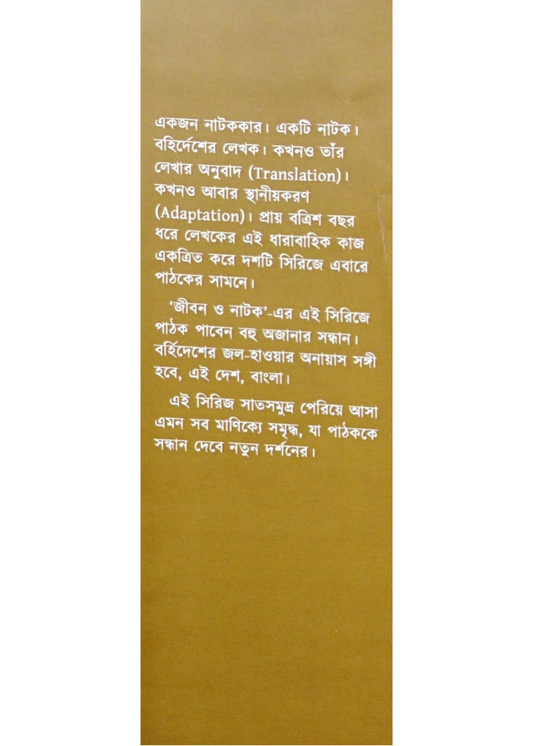 একজন নাটককার। একটি নাটক।
বহির্দেশের লেখক। কখনও তাঁর
লেখার অনুবাদ (Translation)।
কখনও আবার স্থানীয়করণ
(Adaptation)। প্রায় বত্রিশ বছর
ধরে লেখকের এই ধারাবাহিক কাজ
একত্রিত করে দশটি সিরিজে এবারে
পাঠকের সামনে।
‘জীবন ও নাটক’-এর এই সিরিজে
পাঠক পাবেন বহু অজানার সন্ধান।
বর্হিদেশের জল-হাওয়ার অনায়াস সঙ্গী
হবে, এই দেশ, বাংলা।
এই সিরিজ সাতসমুদ্র পেরিয়ে আসা
এমন সব মাণিক্যে সমৃদ্ধ, যা পাঠককে
সন্ধান দেবে নতুন দর্শনের।